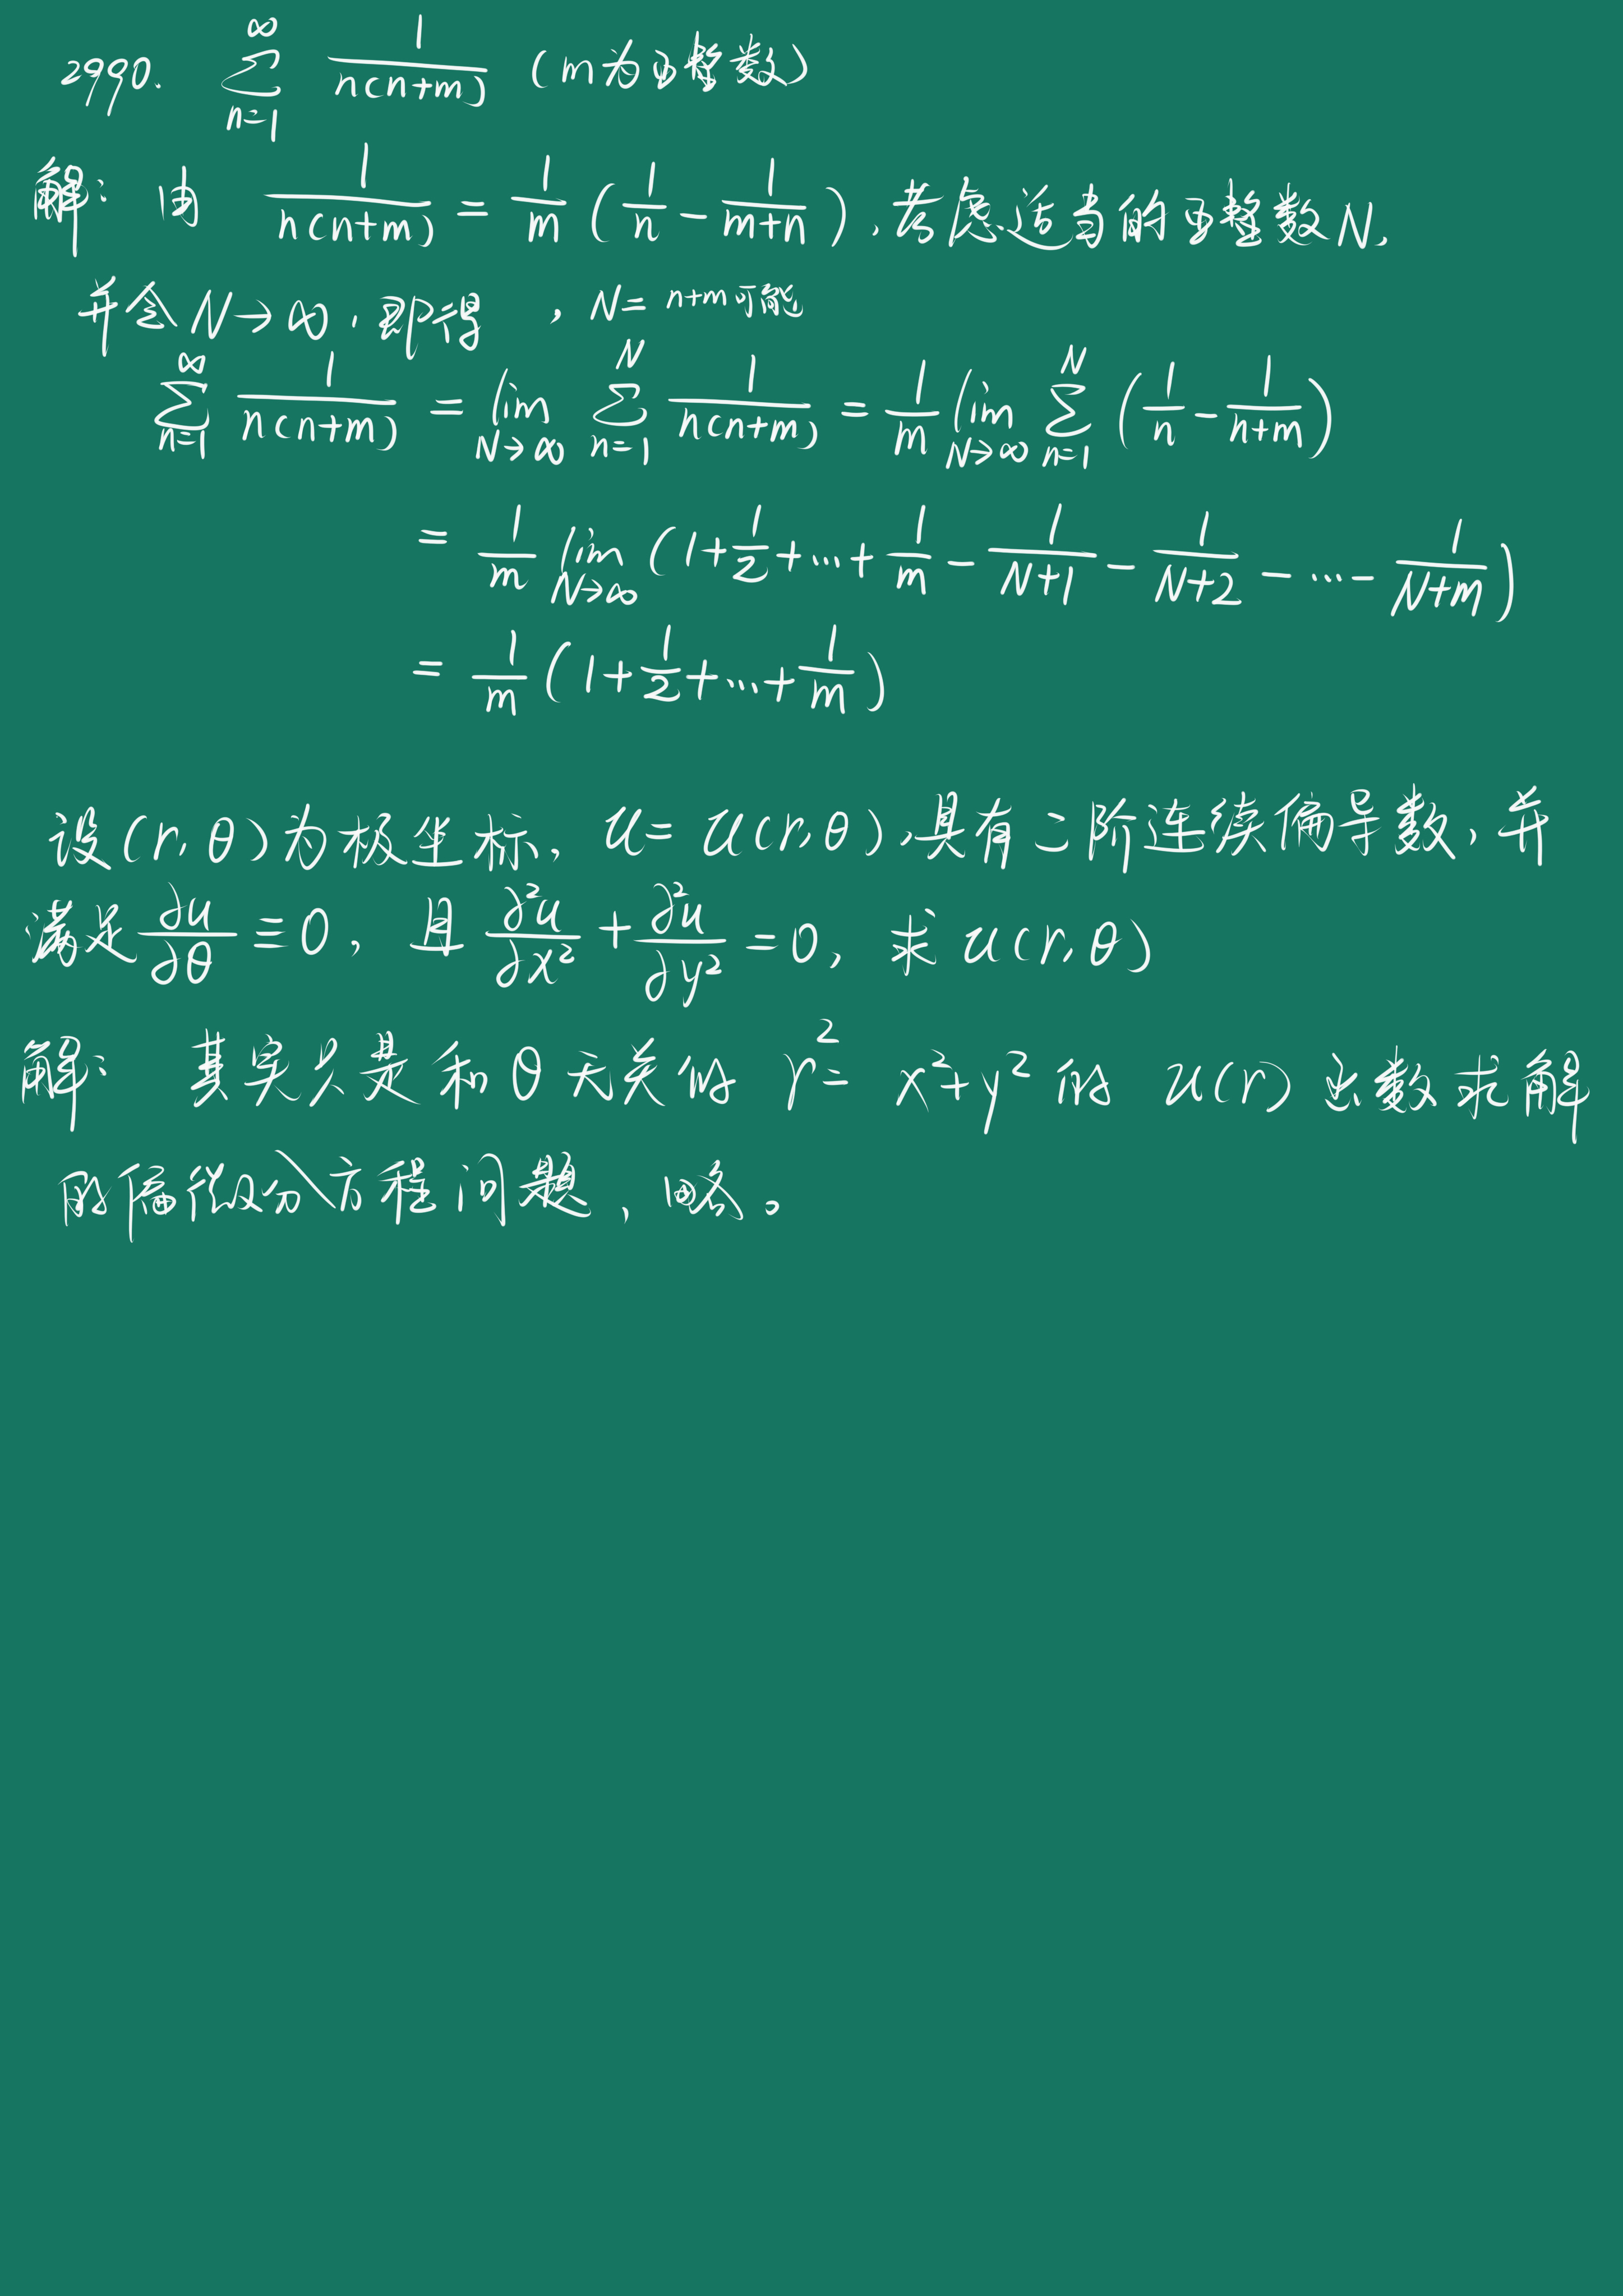 2990. $\sum_{n=1}^{\infty} \frac{1}{n(n+m)}$ (m为正整数)
解: 由 $\frac{1}{n(n+m)} = \frac{1}{m} \left( \frac{1}{n} - \frac{1}{m+n} \right)$, 考虑适当的正整数N,
并令 N→∞, 即得 , N= n+m可能
$\sum_{n=1}^{\infty} \frac{1}{n(n+m)} = \lim_{N \to \infty} \sum_{n=1}^{N} \frac{1}{n(n+m)} = \frac{1}{m} \lim_{N \to \infty} \sum_{n=1}^{N} \left( \frac{1}{n} - \frac{1}{n+m} \right)$
$= \frac{1}{m} \lim_{N \to \infty} \left( 1 + \frac{1}{2} + \cdots + \frac{1}{m} - \frac{1}{N+1} - \frac{1}{N+2} - \cdots - \frac{1}{N+m} \right)$
$= \frac{1}{m} \left( 1 + \frac{1}{2} + \cdots + \frac{1}{m} \right)$
设(r, θ)为极坐标, u= u(r, θ), 具有二阶连续偏导数, 并
满足 $\frac{\partial u}{\partial \theta} \equiv 0$, 且 $\frac{\partial^2 u}{\partial x^2} + \frac{\partial^2 u}{\partial y^2} = 0$, 求 u(r, θ)
解: 其实只是和θ无关的 $r^2 = x^2 + y^2$ 的 u(r) 函数求解
的偏微分方程问题, 略。